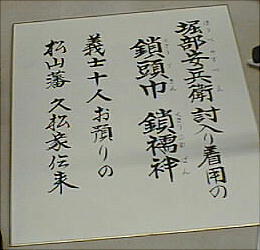 堀部安兵衛討入り着用の
鎖頭巾 鎖襦袢
義士十人お預りの
松山藩 久松家伝来